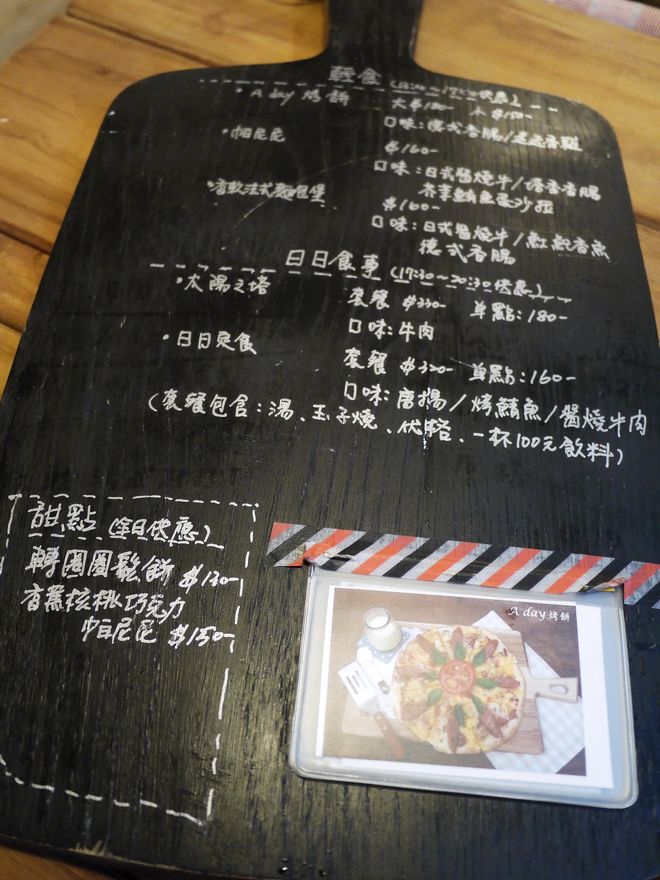 輕食 (13:00~17:30供應)
·A day 烤餅 大$180- 小$150-
口味:德式香腸/
·帕尼尼 $160-
口味:日式醬燒牛/塔香香腸
芥茉鮪魚蛋沙拉
·香軟法式麵包堡 $160-
口味:日式醬燒牛/紅魽香魚
德式香腸
日日食事 (17:30~20:30供應)
·太陽之塔 套餐 $330- 單點:180-
口味:牛肉
·日日定食 套餐 $320- 單點:160-
口味:唐揚/烤鯖魚/醬燒牛肉
(套餐包含:湯、玉子燒、優格、一杯100元飲料)
甜點 (全日供應)
轉圈圈鬆餅 $130-
香蕉核桃巧克力
帕尼尼 $150-
A day 烤餅